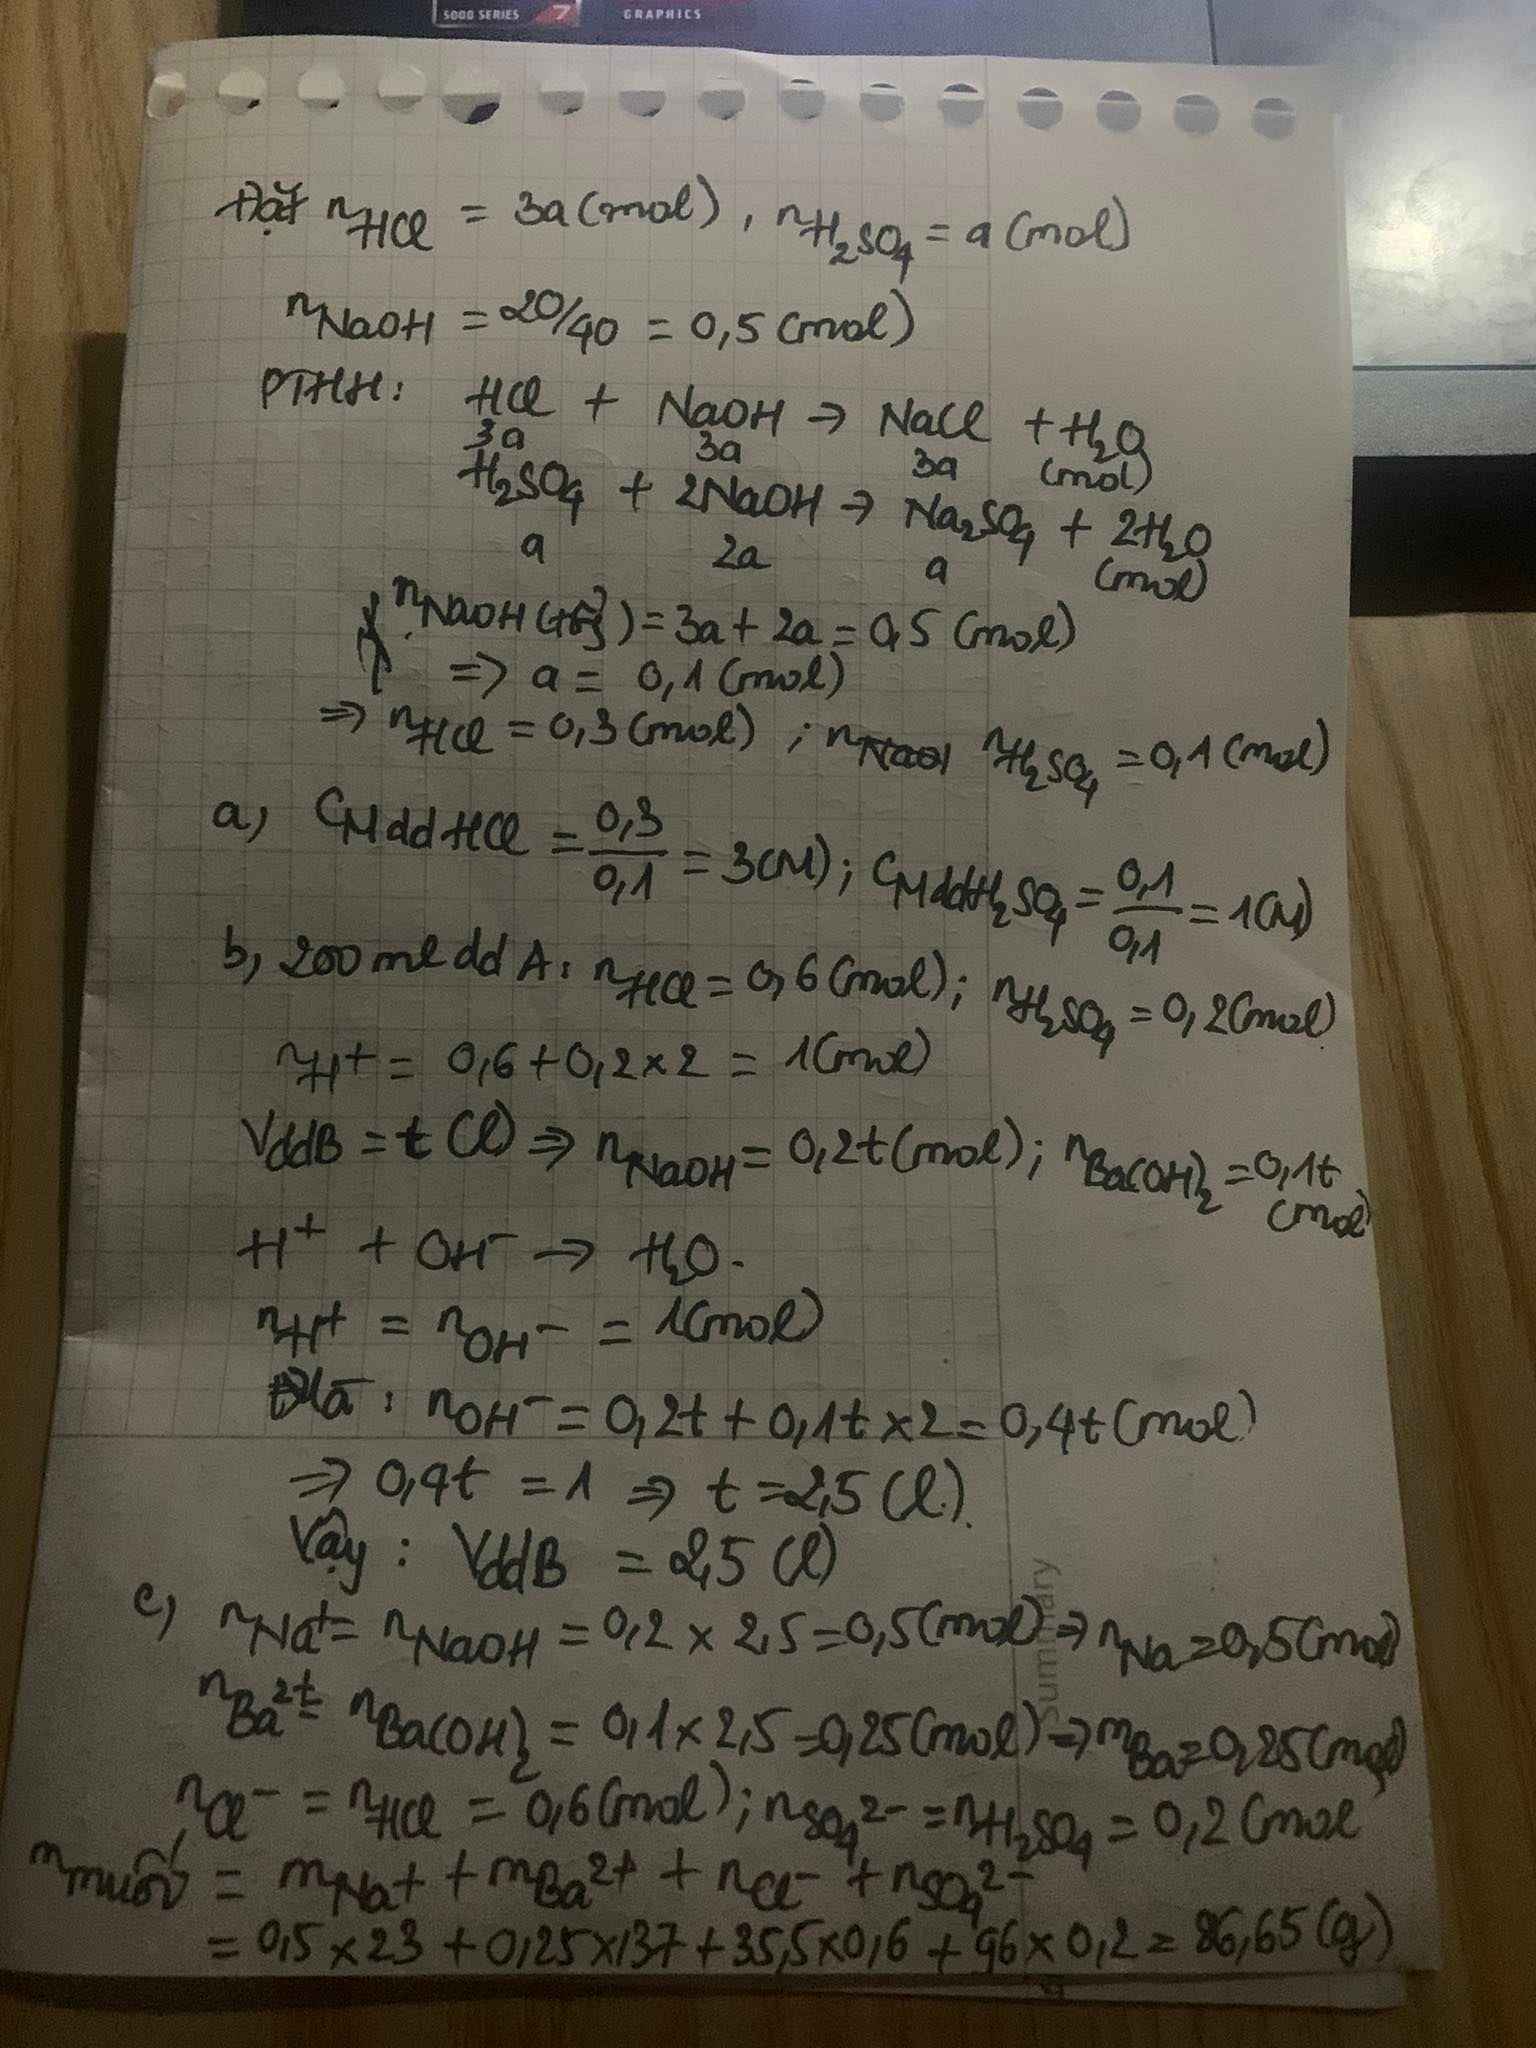 5000 SERIES 7 GRAPHICS
Đặt nHCl = 3a (mol), nH₂SO₄ = a (mol)
nNaOH = 20/40 = 0,5 (mol)
PTHH: HCl + NaOH → NaCl + H₂O
3a 3a 3a (mol)
H₂SO₄ + 2NaOH → Na₂SO₄ + 2H₂O
a 2a a (mol)
nNaOH = 3a + 2a = 0,5 (mol)
=> a = 0,1 (mol)
=> nHCl = 0,3 (mol) ; nH₂SO₄ = 0,1 (mol)
a, CM dd HCl = 0,3/0,1 = 3 (M) ; CM dd H₂SO₄ = 0,1/0,1 = 1 (M)
b, 200 ml dd A: nHCl = 0,6 (mol) ; nH₂SO₄ = 0,2 (mol)
nH⁺ = 0,6 + 0,2 x 2 = 1 (mol)
VddB = t (l) => nNaOH = 0,2t (mol) ; nBa(OH)₂ = 0,1t (mol)
H⁺ + OH⁻ → H₂O.
nH⁺ = nOH⁻ = 1 (mol)
Mà : nOH⁻ = 0,2t + 0,1t x 2 = 0,4t (mol)
=> 0,4t = 1 => t = 2,5 (l).
Vậy : VddB = 2,5 (l)
c, nNa⁺ = nNaOH = 0,2 x 2,5 = 0,5 (mol) => nNa = 0,5 (mol)
nBa²⁺ = nBa(OH)₂ = 0,1 x 2,5 = 0,25 (mol) => nBa = 0,25 (mol)
nCl⁻ = nHCl = 0,6 (mol) ; nSO₄²⁻ = nH₂SO₄ = 0,2 (mol
mmuối = mNa⁺ + mBa²⁺ + nCl⁻ + nSO₄²⁻
= 0,5 x 23 + 0,25 x 137 + 35,5 x 0,6 + 96 x 0,2 = 86,65 (g)
Summary